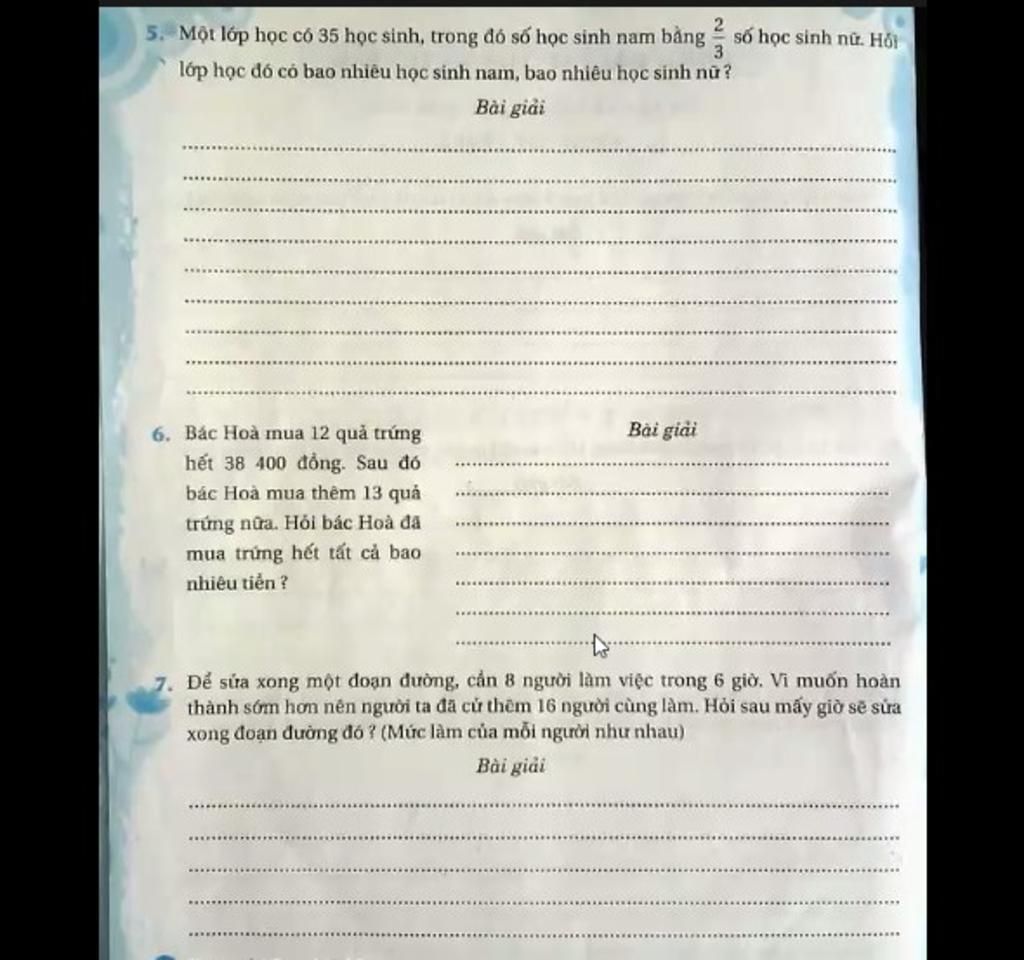 5. Một lớp học có 35 học sinh, trong đó số học sinh nam bằng 2/3 số học sinh nữ. Hỏi
lớp học đó có bao nhiêu học sinh nam, bao nhiêu học sinh nữ ?
Bài giải
6. Bác Hoà mua 12 quả trứng
hết 38 400 đồng. Sau đó
bác Hoà mua thêm 13 quả
trứng nữa. Hỏi bác Hoà đã
mua trứng hết tất cả bao
nhiêu tiền ?
Bài giải
7. Để sửa xong một đoạn đường, cần 8 người làm việc trong 6 giờ. Vì muốn hoàn
thành sớm hơn nên người ta đã cử thêm 16 người cùng làm. Hỏi sau mấy giờ sẽ sửa
xong đoạn đường đó ? (Mức làm của mỗi người như nhau)
Bài giải